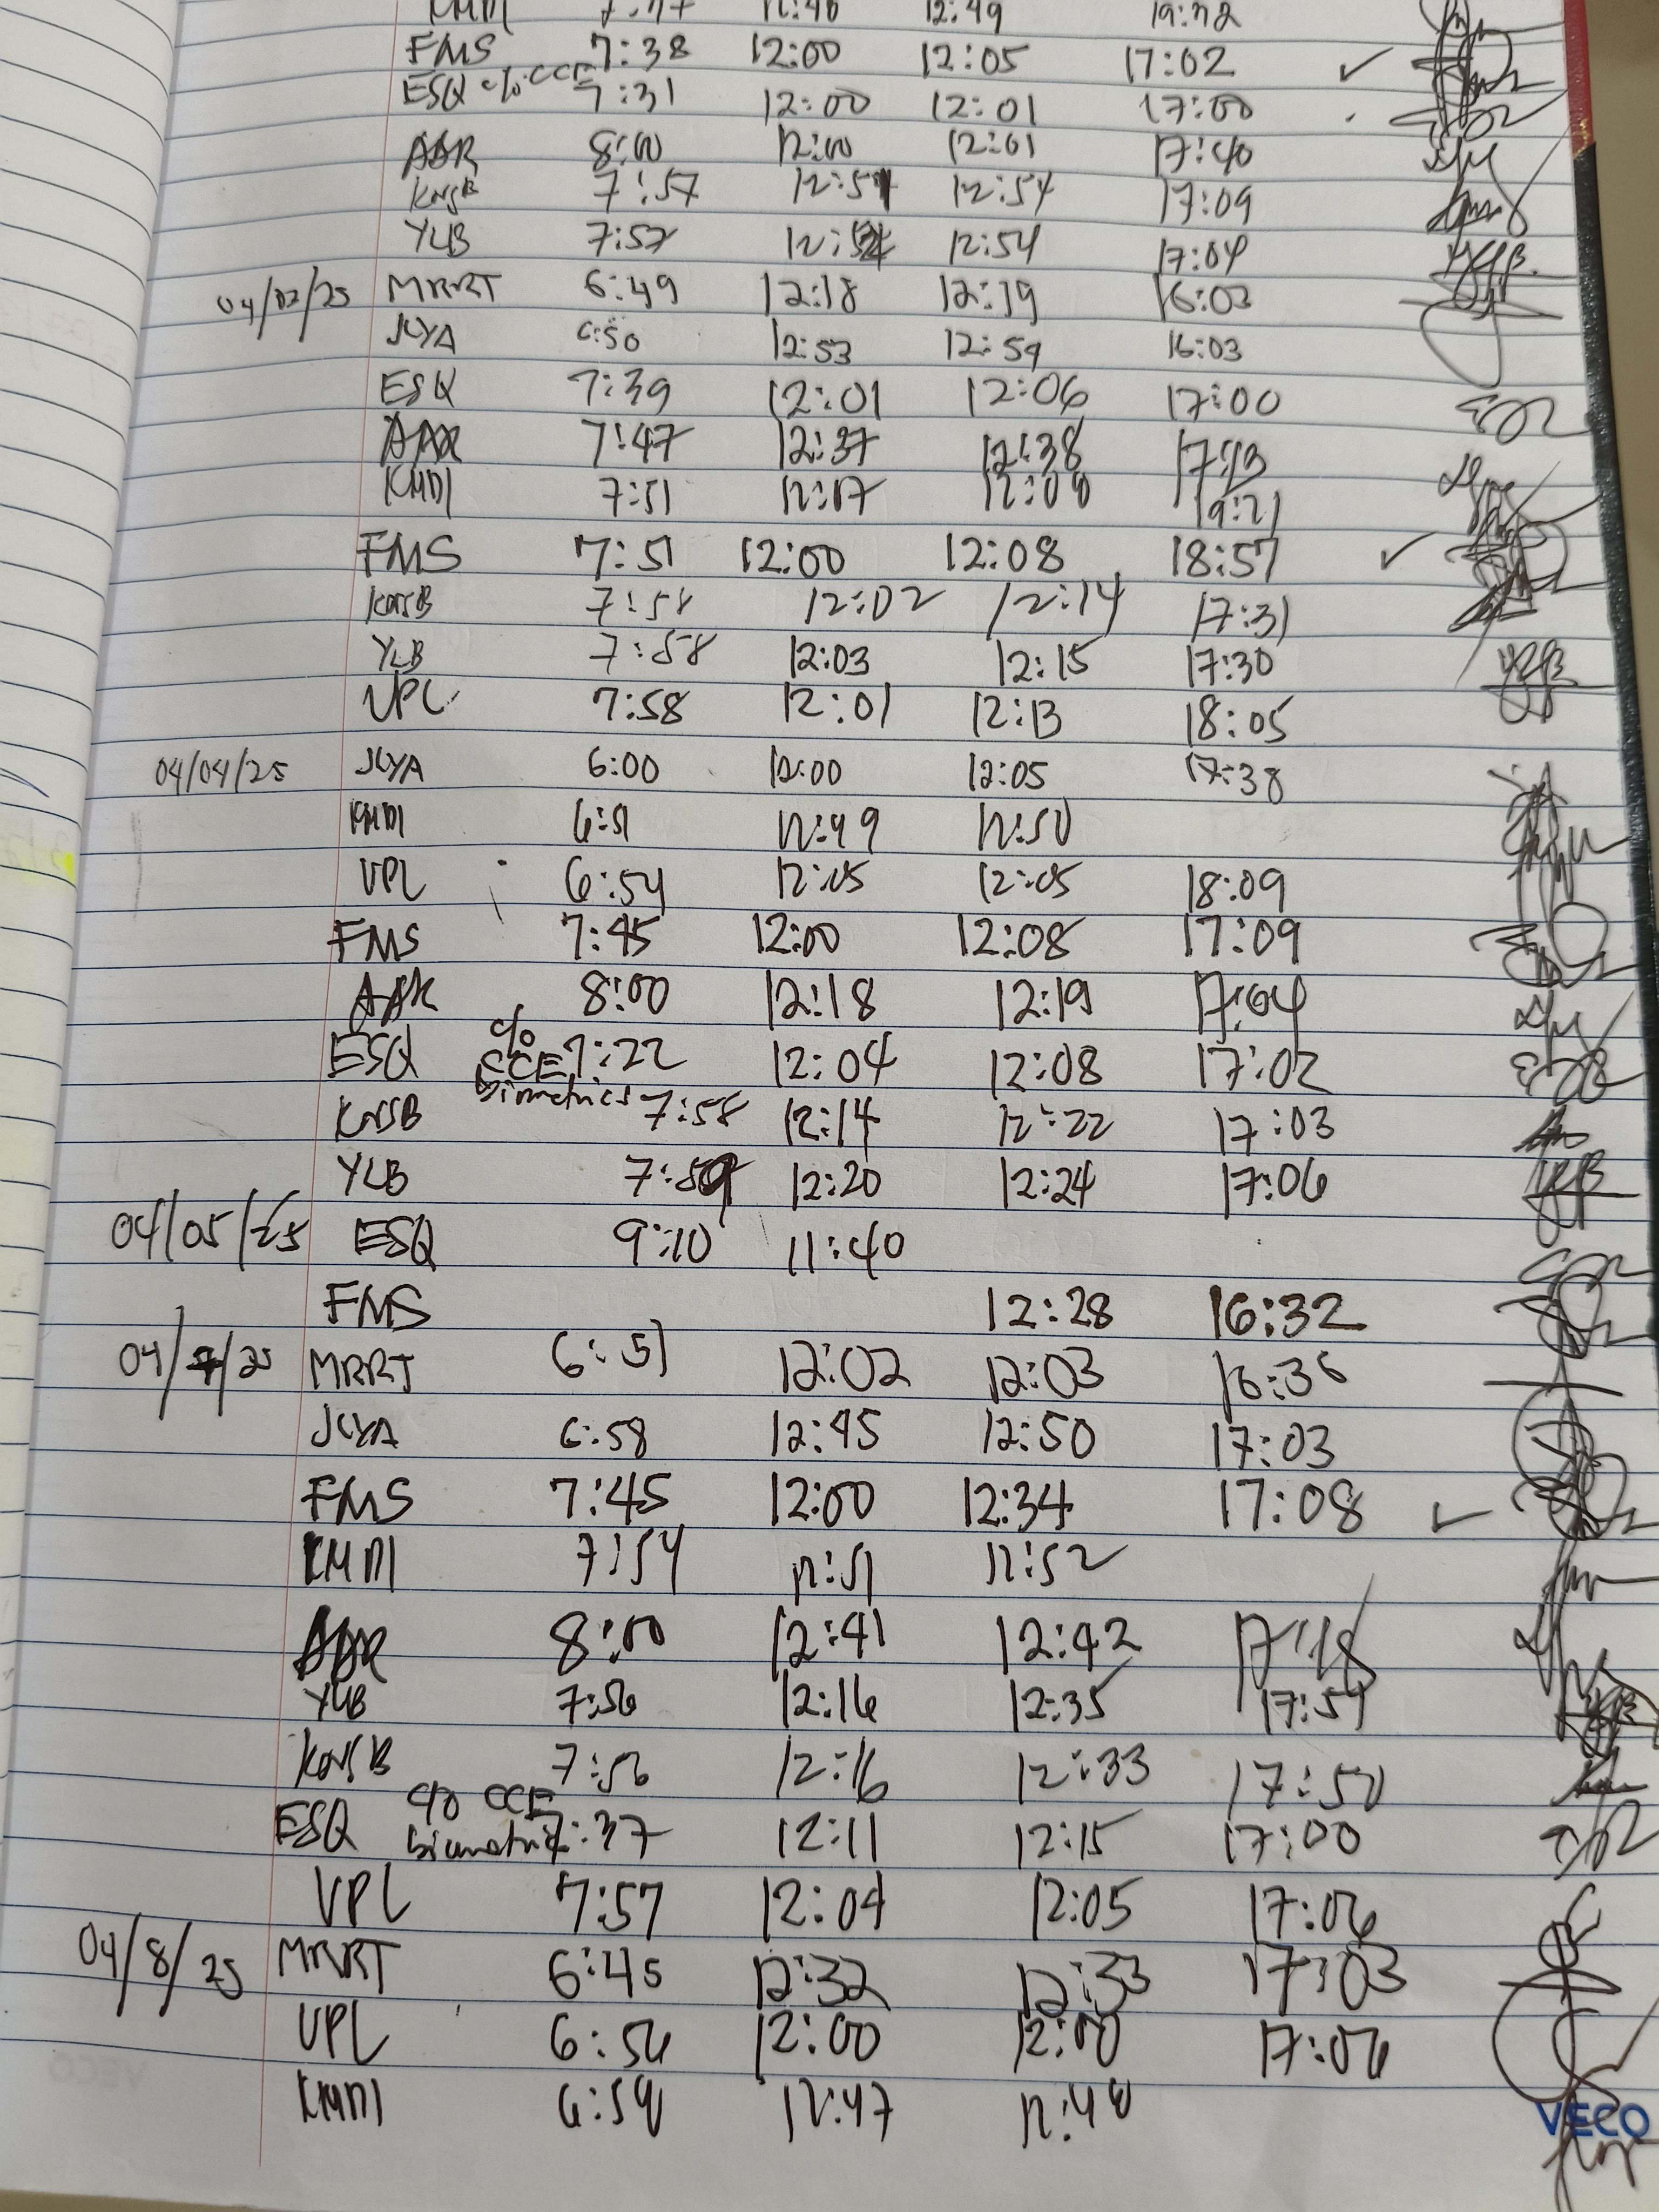 KMDI 12:49
FMS 7:38 12:00 12:05 17:02 ✓
ESQ c/o CCE 7:31 12:00 12:01 17:00
AAR 8:00 12:00 12:01 17:40
KNSB 7:57 12:54 12:54 17:09
YLB 7:57 12:54 17:04
04/02/25 MRRT 6:49 12:18 12:19 16:03
JCYA 6:50 12:53 12:59 16:03
ESQ 7:39 12:01 12:06 17:00
AAR 7:47 12:37 12:38 17:13
KMDI 7:51 12:07 12:08 19:21
FMS 7:51 12:00 12:08 18:57 ✓
KNSB 7:58 12:02 12:14 17:31
YLB 7:58 12:03 12:15 17:30
VPL 7:58 12:01 12:13 18:05
04/04/25 JCYA 6:00 12:00 12:05 17:38
KMDI 6:51 12:49 12:50
VPL 6:54 12:05 12:05 18:09
FMS 7:45 12:00 12:08 17:09
AAR 8:00 12:18 12:19 17:04
ESQ c/o CCE biometrics 7:22 12:04 12:08 17:02
KNSB 7:58 12:14 12:22 17:03
YLB 7:59 12:20 12:24 17:06
04/05/25 ESQ 9:10 11:40
FMS 12:28 16:32
04/7/25 MRRT 6:51 12:02 12:03 16:36
JCYA 6:58 12:45 12:50 17:03
FMS 7:45 12:00 12:34 17:08 ✓
KMDI 7:54 12:51 12:52
AAR 8:00 12:41 12:42 17:18
YLB 7:56 12:16 12:35 17:54
KNSB 7:56 12:16 12:33 17:50
ESQ c/o CCE biometrics 7:37 12:11 12:15 17:00
VPL 7:57 12:04 12:05 17:06
04/8/25 MRRT 6:45 12:32 12:33 17:03
VPL 6:56 12:00 12:00 17:06
KMDI 6:58 12:47 12:48
VECO